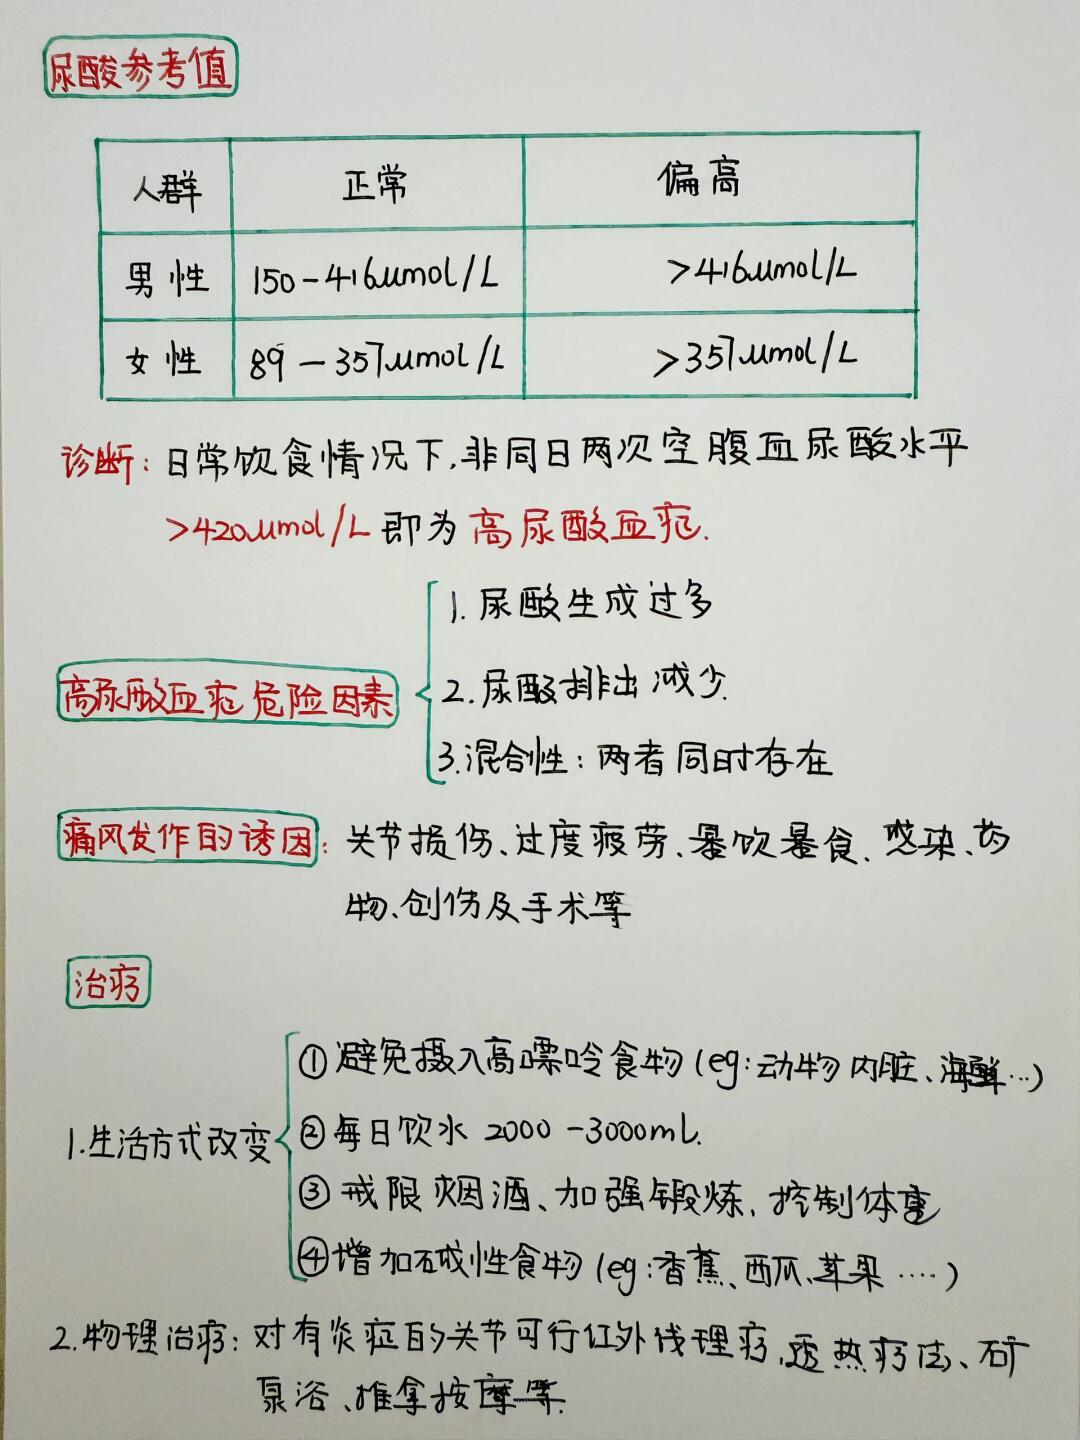 尿酸参考值
人群 正常 偏高
男性 150-416μmol/L >416μmol/L
女性 89-357μmol/L >357μmol/L
诊断:日常饮食情况下,非同日两次空腹血尿酸水平
>420μmol/L即为高尿酸血症.
1.尿酸生成过多
高尿酸血症危险因素
2.尿酸排出减少
3.混合性:两者同时存在
痛风发作的诱因:关节损伤、过度疲劳、暴饮暴食、感染、药
物、创伤及手术等
治疗
①避免摄入高嘌呤食物(eg:动物内脏、海鲜…)
1.生活方式改变
②每日饮水2000-3000mL.
③戒限烟酒、加强锻炼,控制体重
④增加碱性食物(eg:香蕉、西瓜、苹果....)
2.物理治疗:对有炎症的关节可行红外线理疗,透热疗法、矿
泉浴、推拿按摩等.